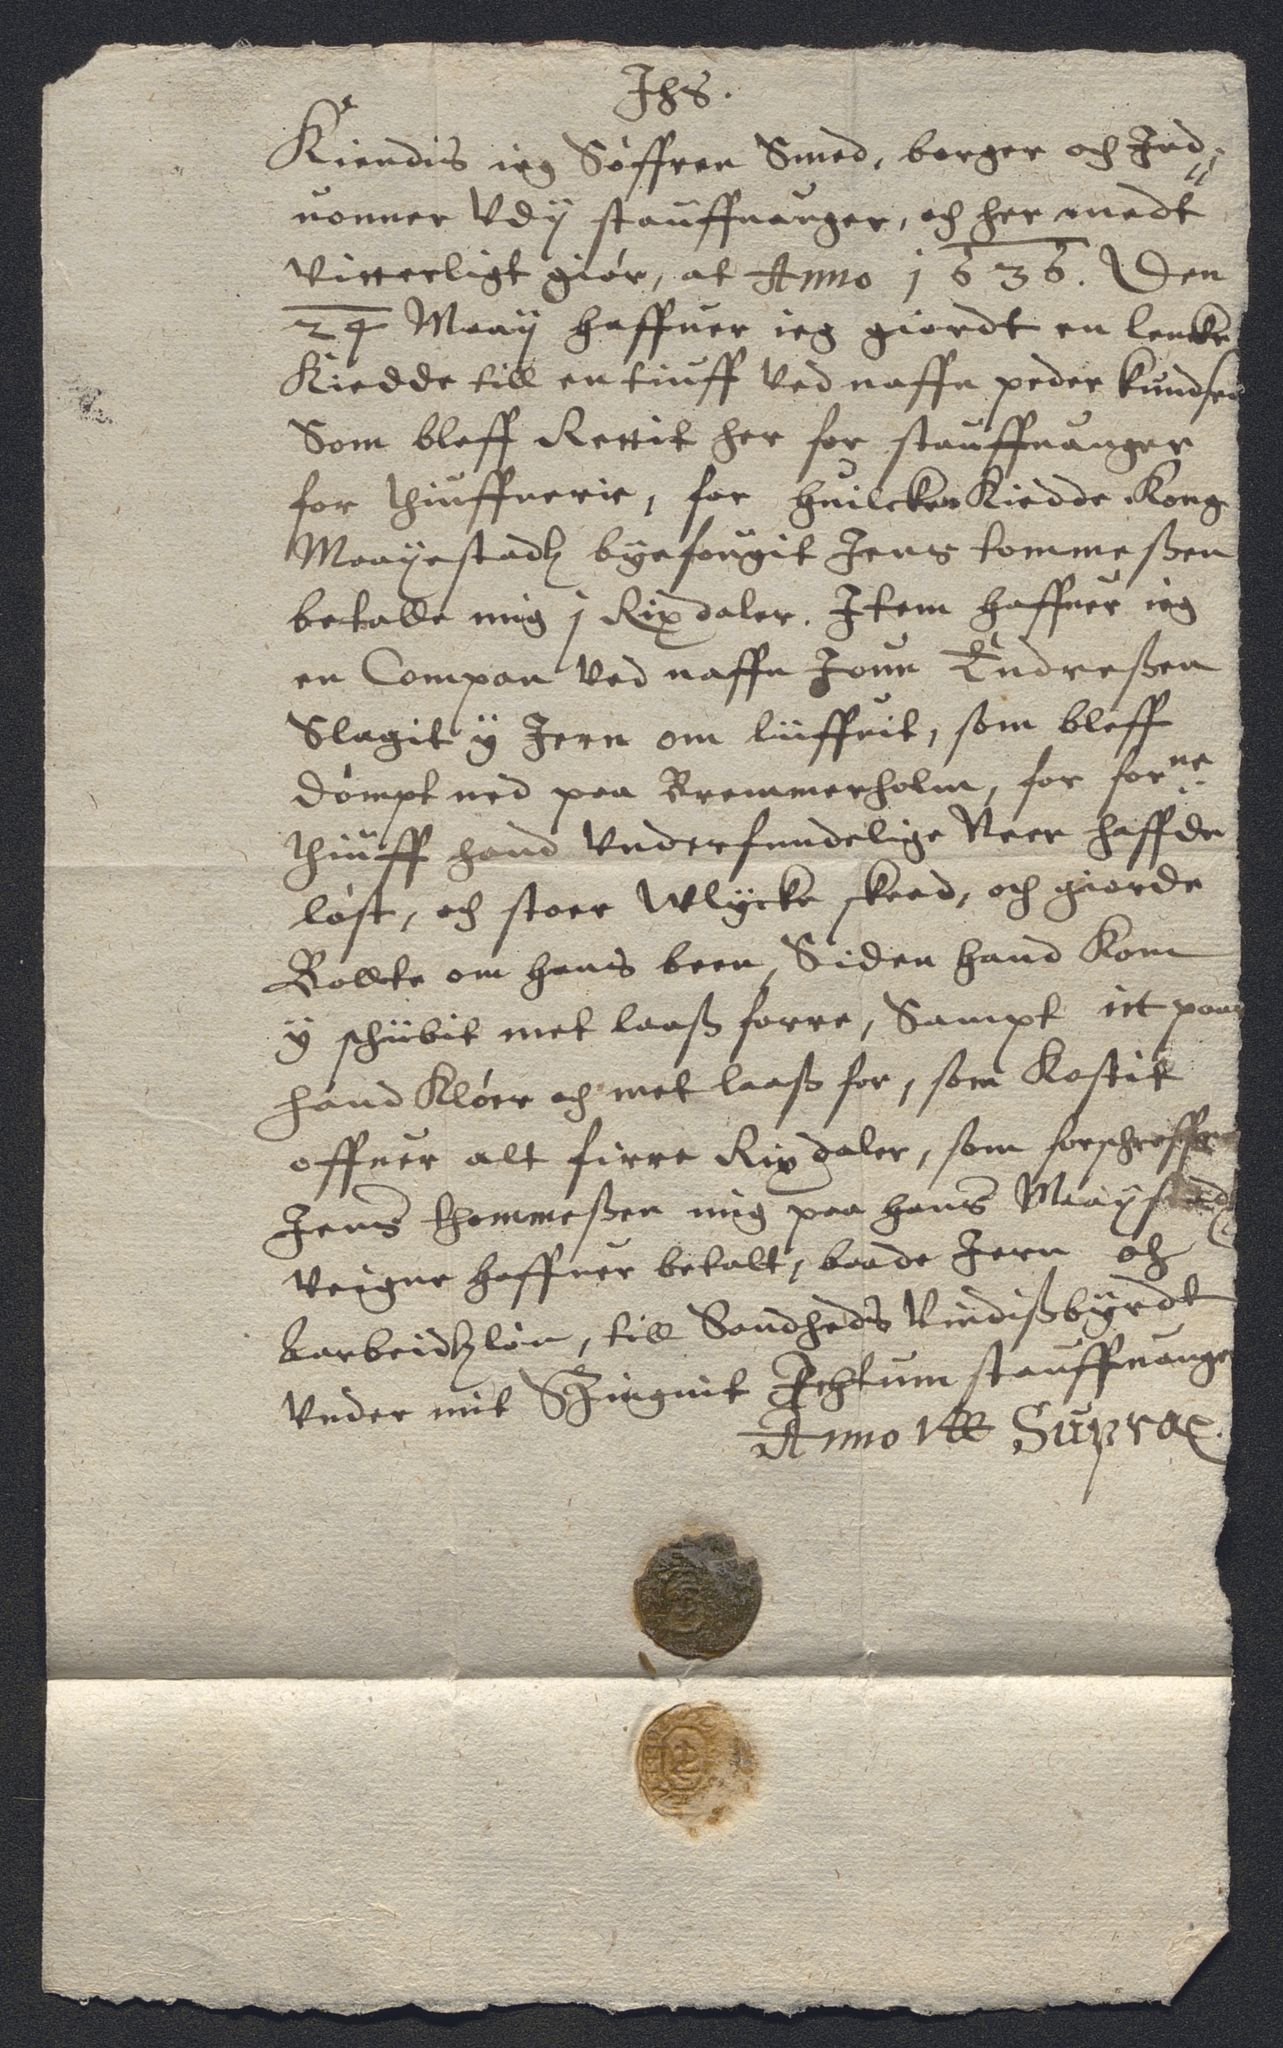 Jhs.
Kiendis ieg Söffren Smed, borger och Ind-
uonner Udÿ stauffuanger, och her medt
vitterligt giör, at Anno 1636. Den
24 Maaÿ haffuer ieg giordt en lencke
Kiedde till en tiuff ved naffn peder kundsen
Som bleff Rettit her for stauffuanger
for thiuffuerie, for huilcken Kiedde Kong
Maaÿestadtz bÿefougit Jens tommeßen
betalde mig j Rixdaler. Item haffuer ieg
en Compan ved naffn Joun Endreßen
Slagit ÿ Jern om liiffuit, som bleff
dömpt ned paa Bremmerholm, for forne
thiuff hand underfundelige Veer haffde
löst, och stoer wlÿcke skeed, och giorde
Bollte om hans been, Siden hand kom
ÿ schibit met laaß forre, Sampt itt paar
hand Klöer och met laaß for, som kostit
offuer alt firre Rixdaler, som forschreffne
Jens thommeßen mig paa hans Maaÿstadtz
veigne haffuer betalt, baade Jern och
karbeidtzlön, till Sandheds Vindißbÿrdt
under mit Szingnit Achtum stauffuanger
Anno Utt Supra.